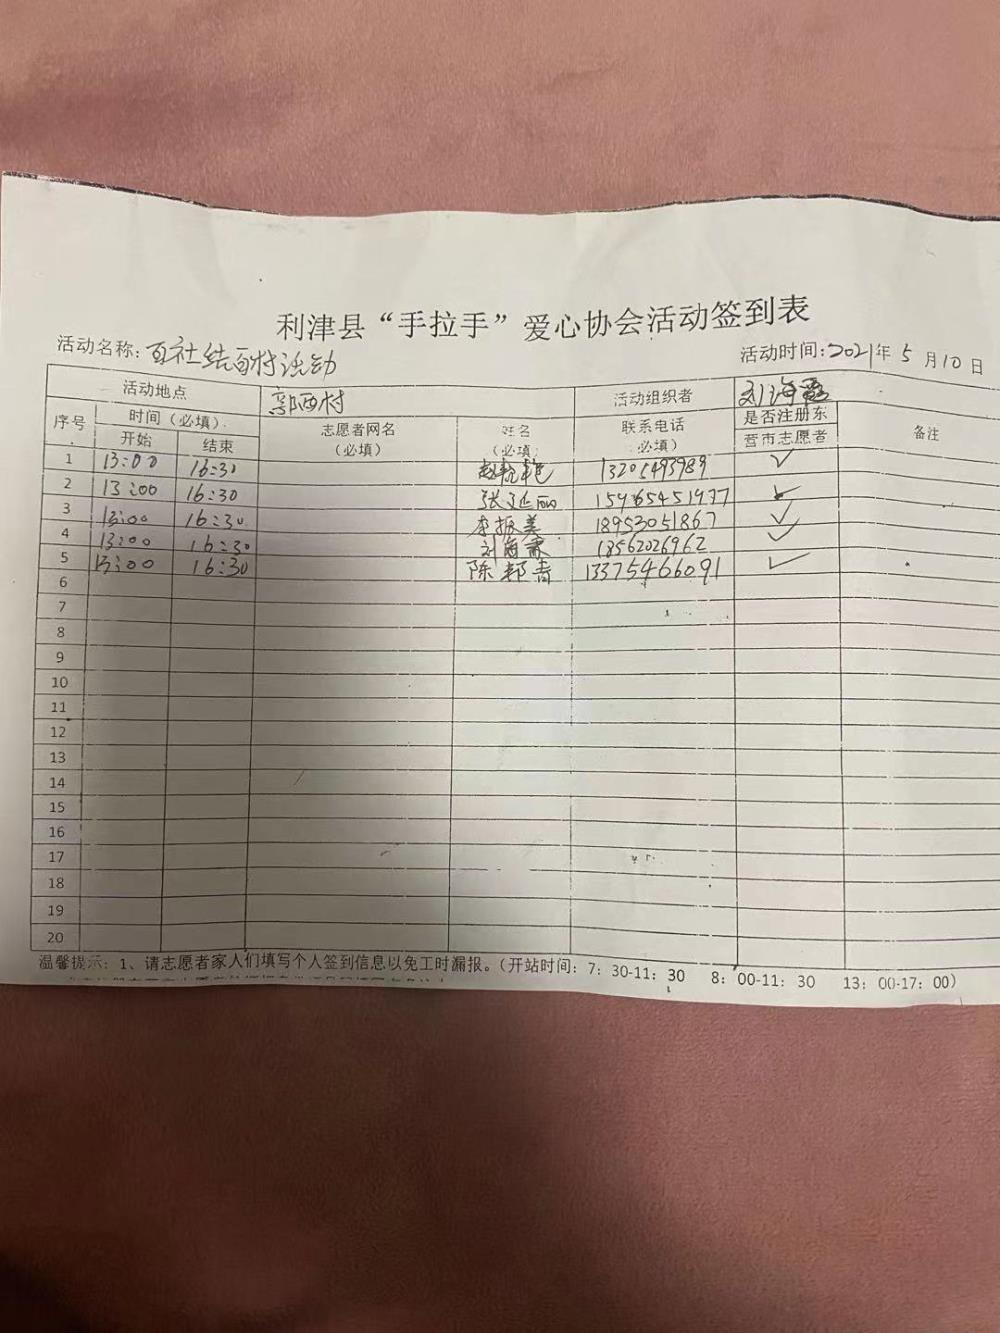 利津县“手拉手”爱心协会活动签到表
活动名称：百社结百村活动 活动时间：2021年 5 月 10 日
活动地点 郭西村 活动组织者 刘海霞
序号 时间（必填） 志愿者网名（必填） 姓名（必填） 联系电话（必填） 是否注册东营市志愿者 备注
开始 结束
1 13:00 16:30 13205493989 ✓
2 13:00 16:30 15965451977 ✓
3 13:00 16:30 李振美 18953051867 ✓
4 13:00 16:30 18562026962 ✓
5 13:00 16:30 陈邦春 13375466091 ✓
6
7
8
9
10
11
12
13
14
15
16
17
18
19
20
温馨提示：1、请志愿者家人们填写个人签到信息以免工时漏报。（开站时间：7：30-11：30 8：00-11：30 13：00-17：00）